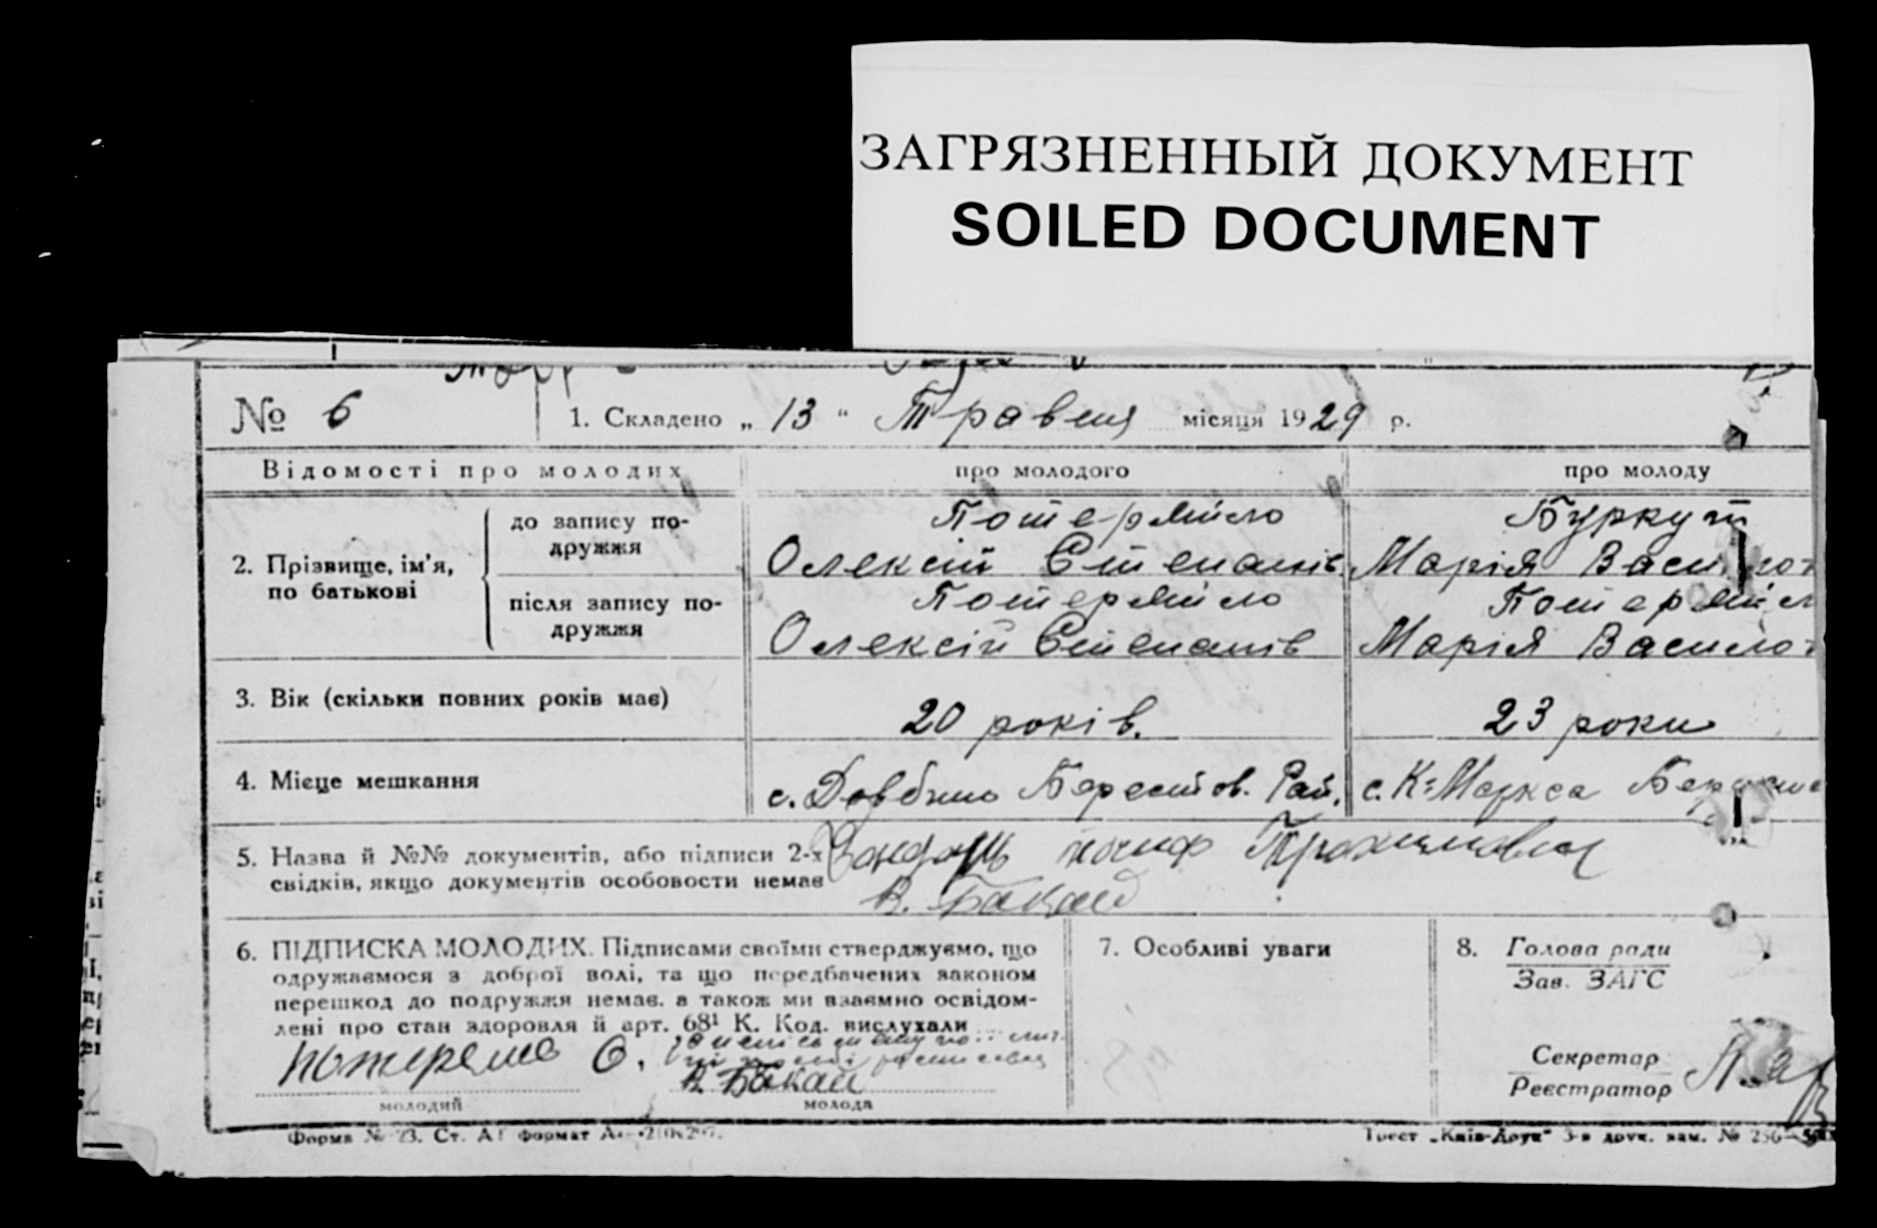 ЗАГРЯЗНЕННЫЙ ДОКУМЕНТ
SOILED DOCUMENT
№ 6
1. Складено „ 13 " Травня місяця 1929 р.
Відомості про молодих
про молодого
про молоду
2. Прізвище, ім'я, по батькові
до запису по-
дружжя
Потерміло
Олексій Степанів
Буркут
Марія
після запису по-
дружжя
Потерміло
Олексій Степанів
Марія
3. Вік (скільки повних років має)
20 років.
23 роки
4. Місце мешкання
с. Довбино Берестов. Рай.
с. К. Маркса
5. Назва й №№ документів, або підписи 2-х
свідків, якщо документів особовости немає
В. Бакай
6. ПІДПИСКА МОЛОДИХ. Підписами своїми стверджуємо, що
одружаємося з доброї волі, та що передбачених законом
перешкод до подружжя немає, а також ми взаємно освідом-
лені про стан здоровля й арт. 68¹ К. Код. вислухали
В. Бакай
молодий
молода
7. Особливі уваги
8. Голова ради
Зав. ЗАГС
Секретар
Реєстратор
Форма № 23. Ст. А1 формат
Трест „Київ-Друк" 3-я друк. зам. № 256